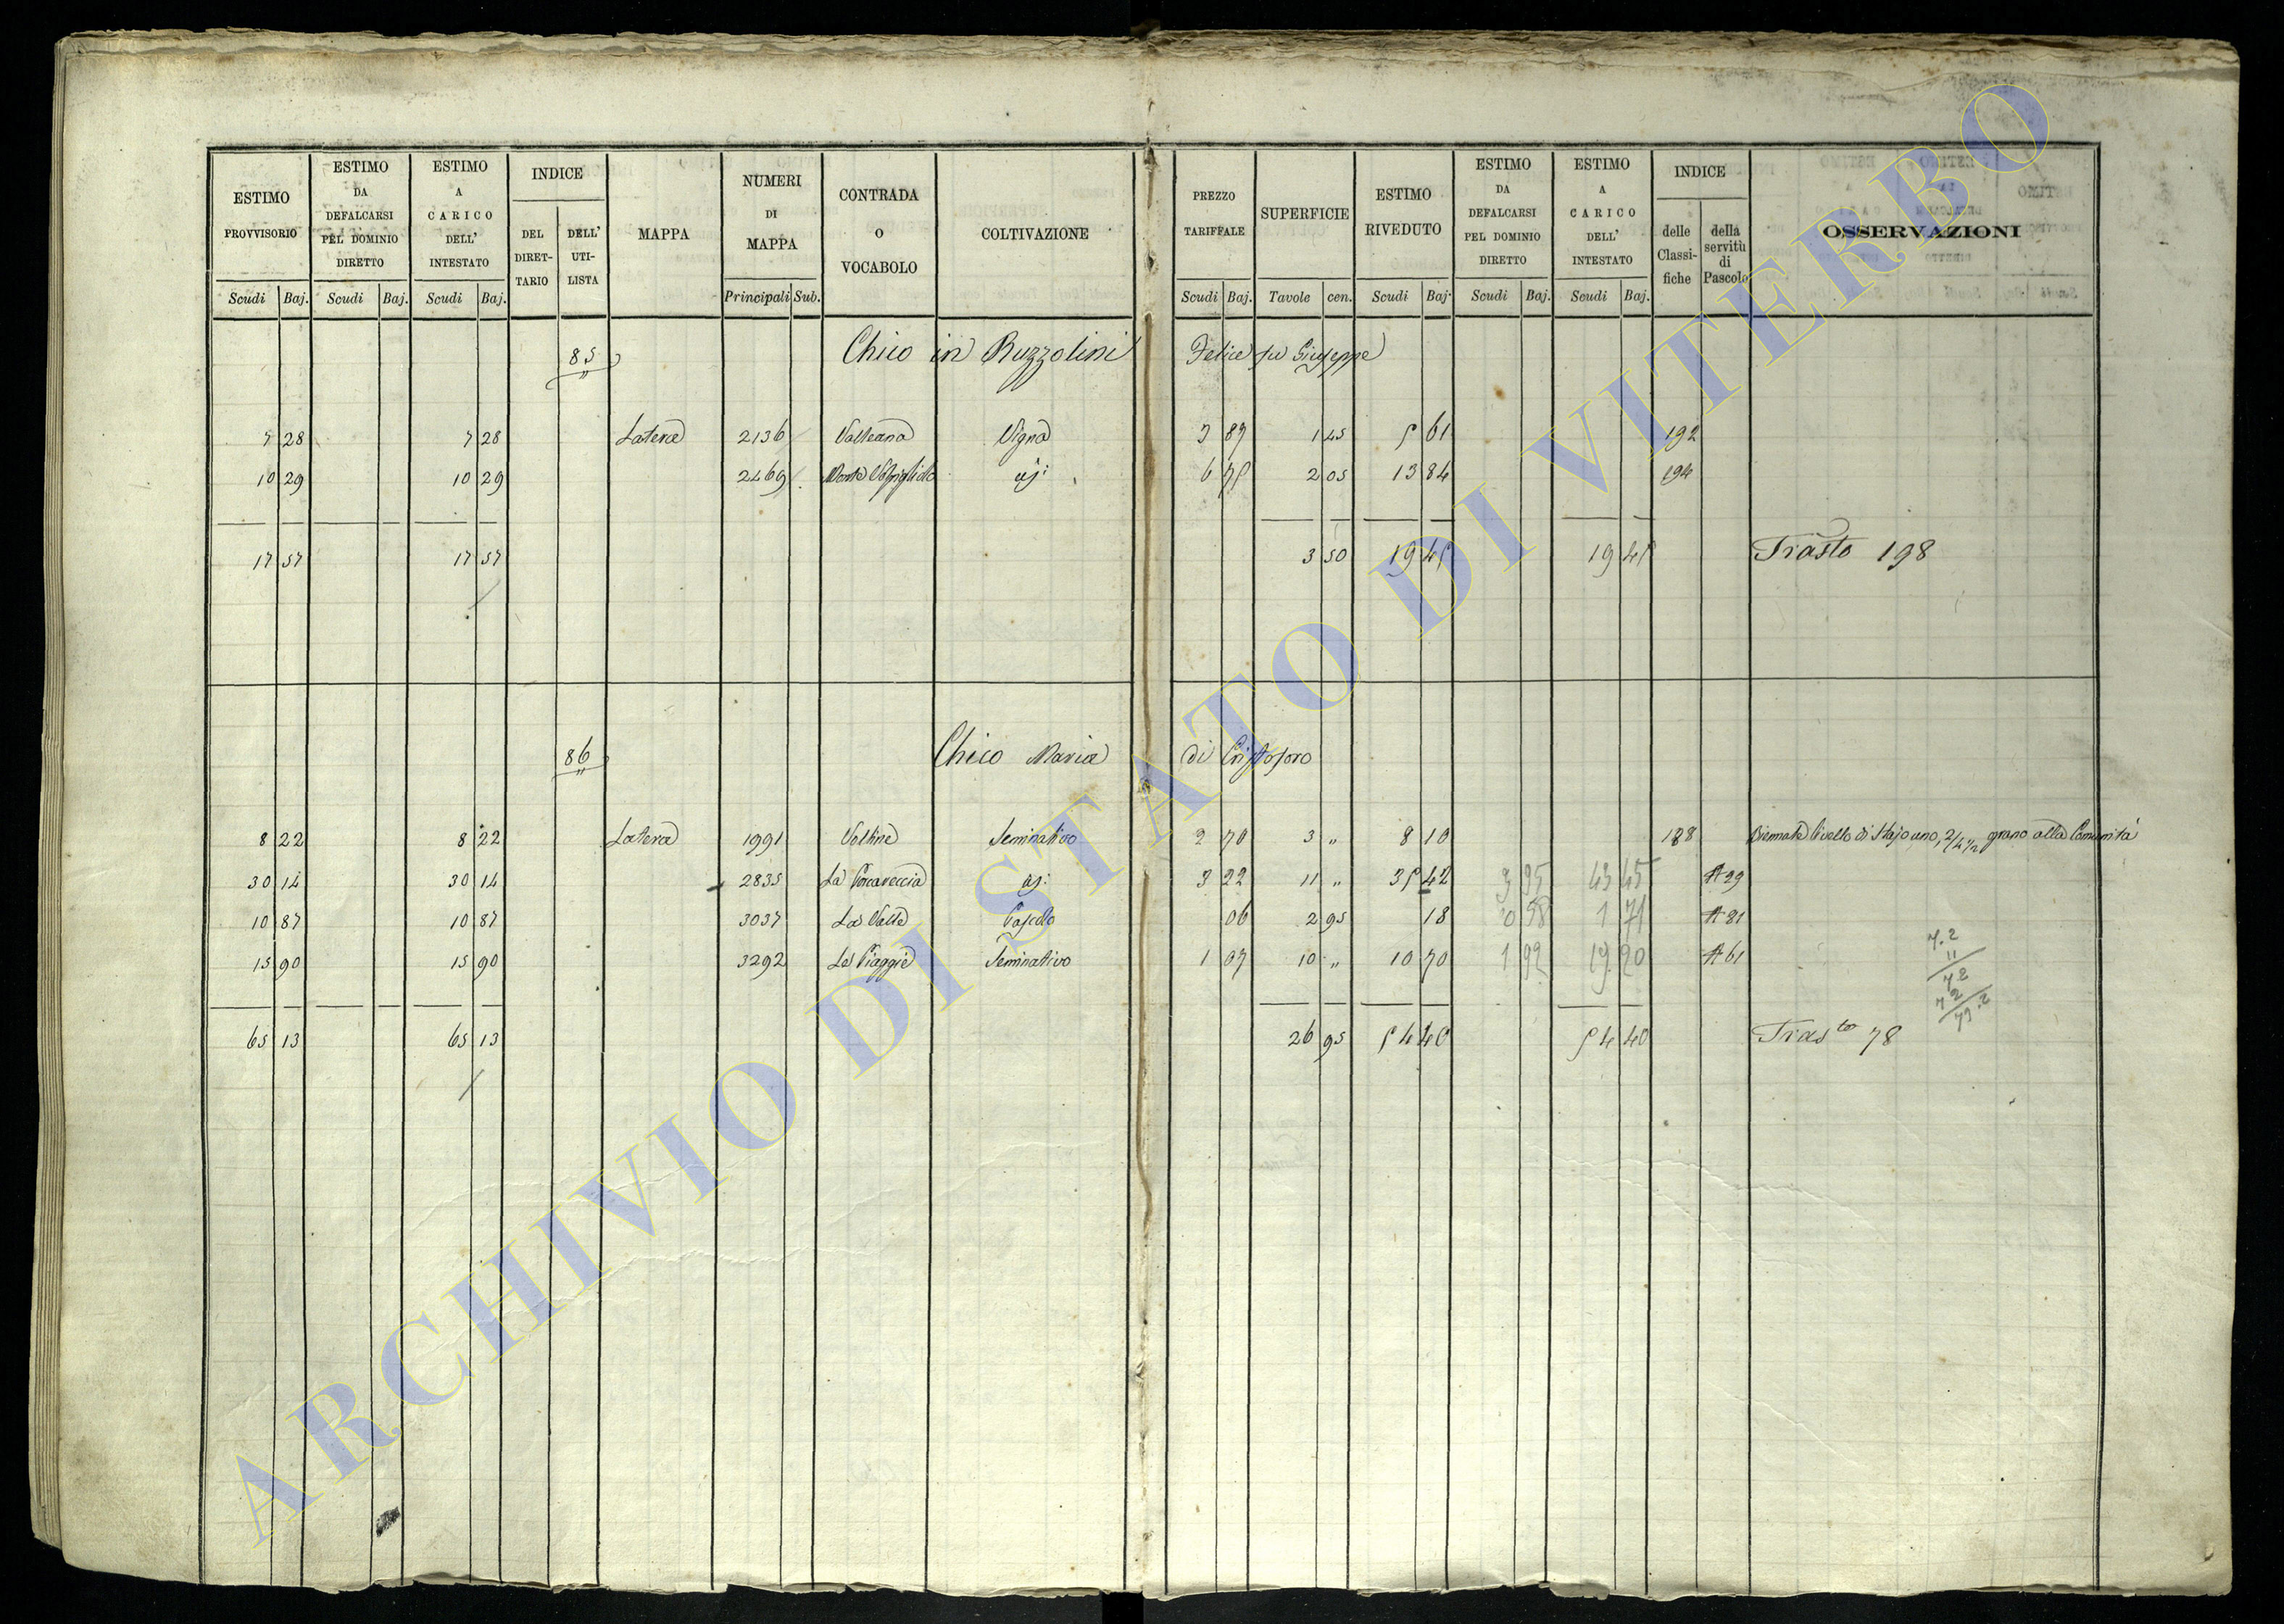 ESTIMO PROVVISORIO | ESTIMO DA DEFALCARSI PEL DOMINIO DIRETTO | ESTIMO A CARICO DELL' INTESTATO | INDICE | MAPPA | NUMERI DI MAPPA | CONTRADA O VOCABOLO | COLTIVAZIONE | PREZZO TARIFFALE | SUPERFICIE | ESTIMO RIVEDUTO | ESTIMO DA DEFALCARSI PEL DOMINIO DIRETTO | ESTIMO A CARICO DELL' INTESTATO | INDICE | OSSERVAZIONI
DEL DIRETTARIO | DELL' UTILISTA | delle Classifiche | della servitù di Pascolo
Scudi Baj. | Scudi Baj. | Scudi Baj. | Principali Sub. | Scudi Baj. | Tavole cen. | Scudi Baj. | Scudi Baj. | Scudi Baj.
85 Chico in Ruzzolini Felice fu Giuseppe
7 28 | 7 28 | Latera | 2136 | Valleana | Vigna | 3 87 | 1 45 | 5 61 | 192
10 29 | 10 29 | 2469 | Monte | 6 75 | 2 05 | 13 84 | 194
17 57 | 17 57 | 3 50 | 19 45 | 19 45 | Trasto 198
86 Chico Maria di Cristoforo
8 22 | 8 22 | Latera | 1991 | Seminativo | 2 70 | 3 " | 8 10 | 188 | Biennale livello di Stajo uno, grano alla Comunità
30 14 | 30 14 | 2835 | La Porcareccia | 3 22 | 11 " | 35 42 | 3 95 | 43 45 | A 29
10 87 | 10 87 | 3037 | La Valle | Pascolo | 06 | 2 95 | 18 | 0 58 | 1 71 | A 81
15 90 | 15 90 | 3292 | Le Piaggie | Seminativo | 1 07 | 10 " | 10 70 | 1 92 | 19 20 | A 61
7.2
11
72
72
79.2
65 13 | 65 13 | 26 95 | 54 40 | 54 40 | Trasto 78
ARCHIVIO DI STATO DI VITERBO